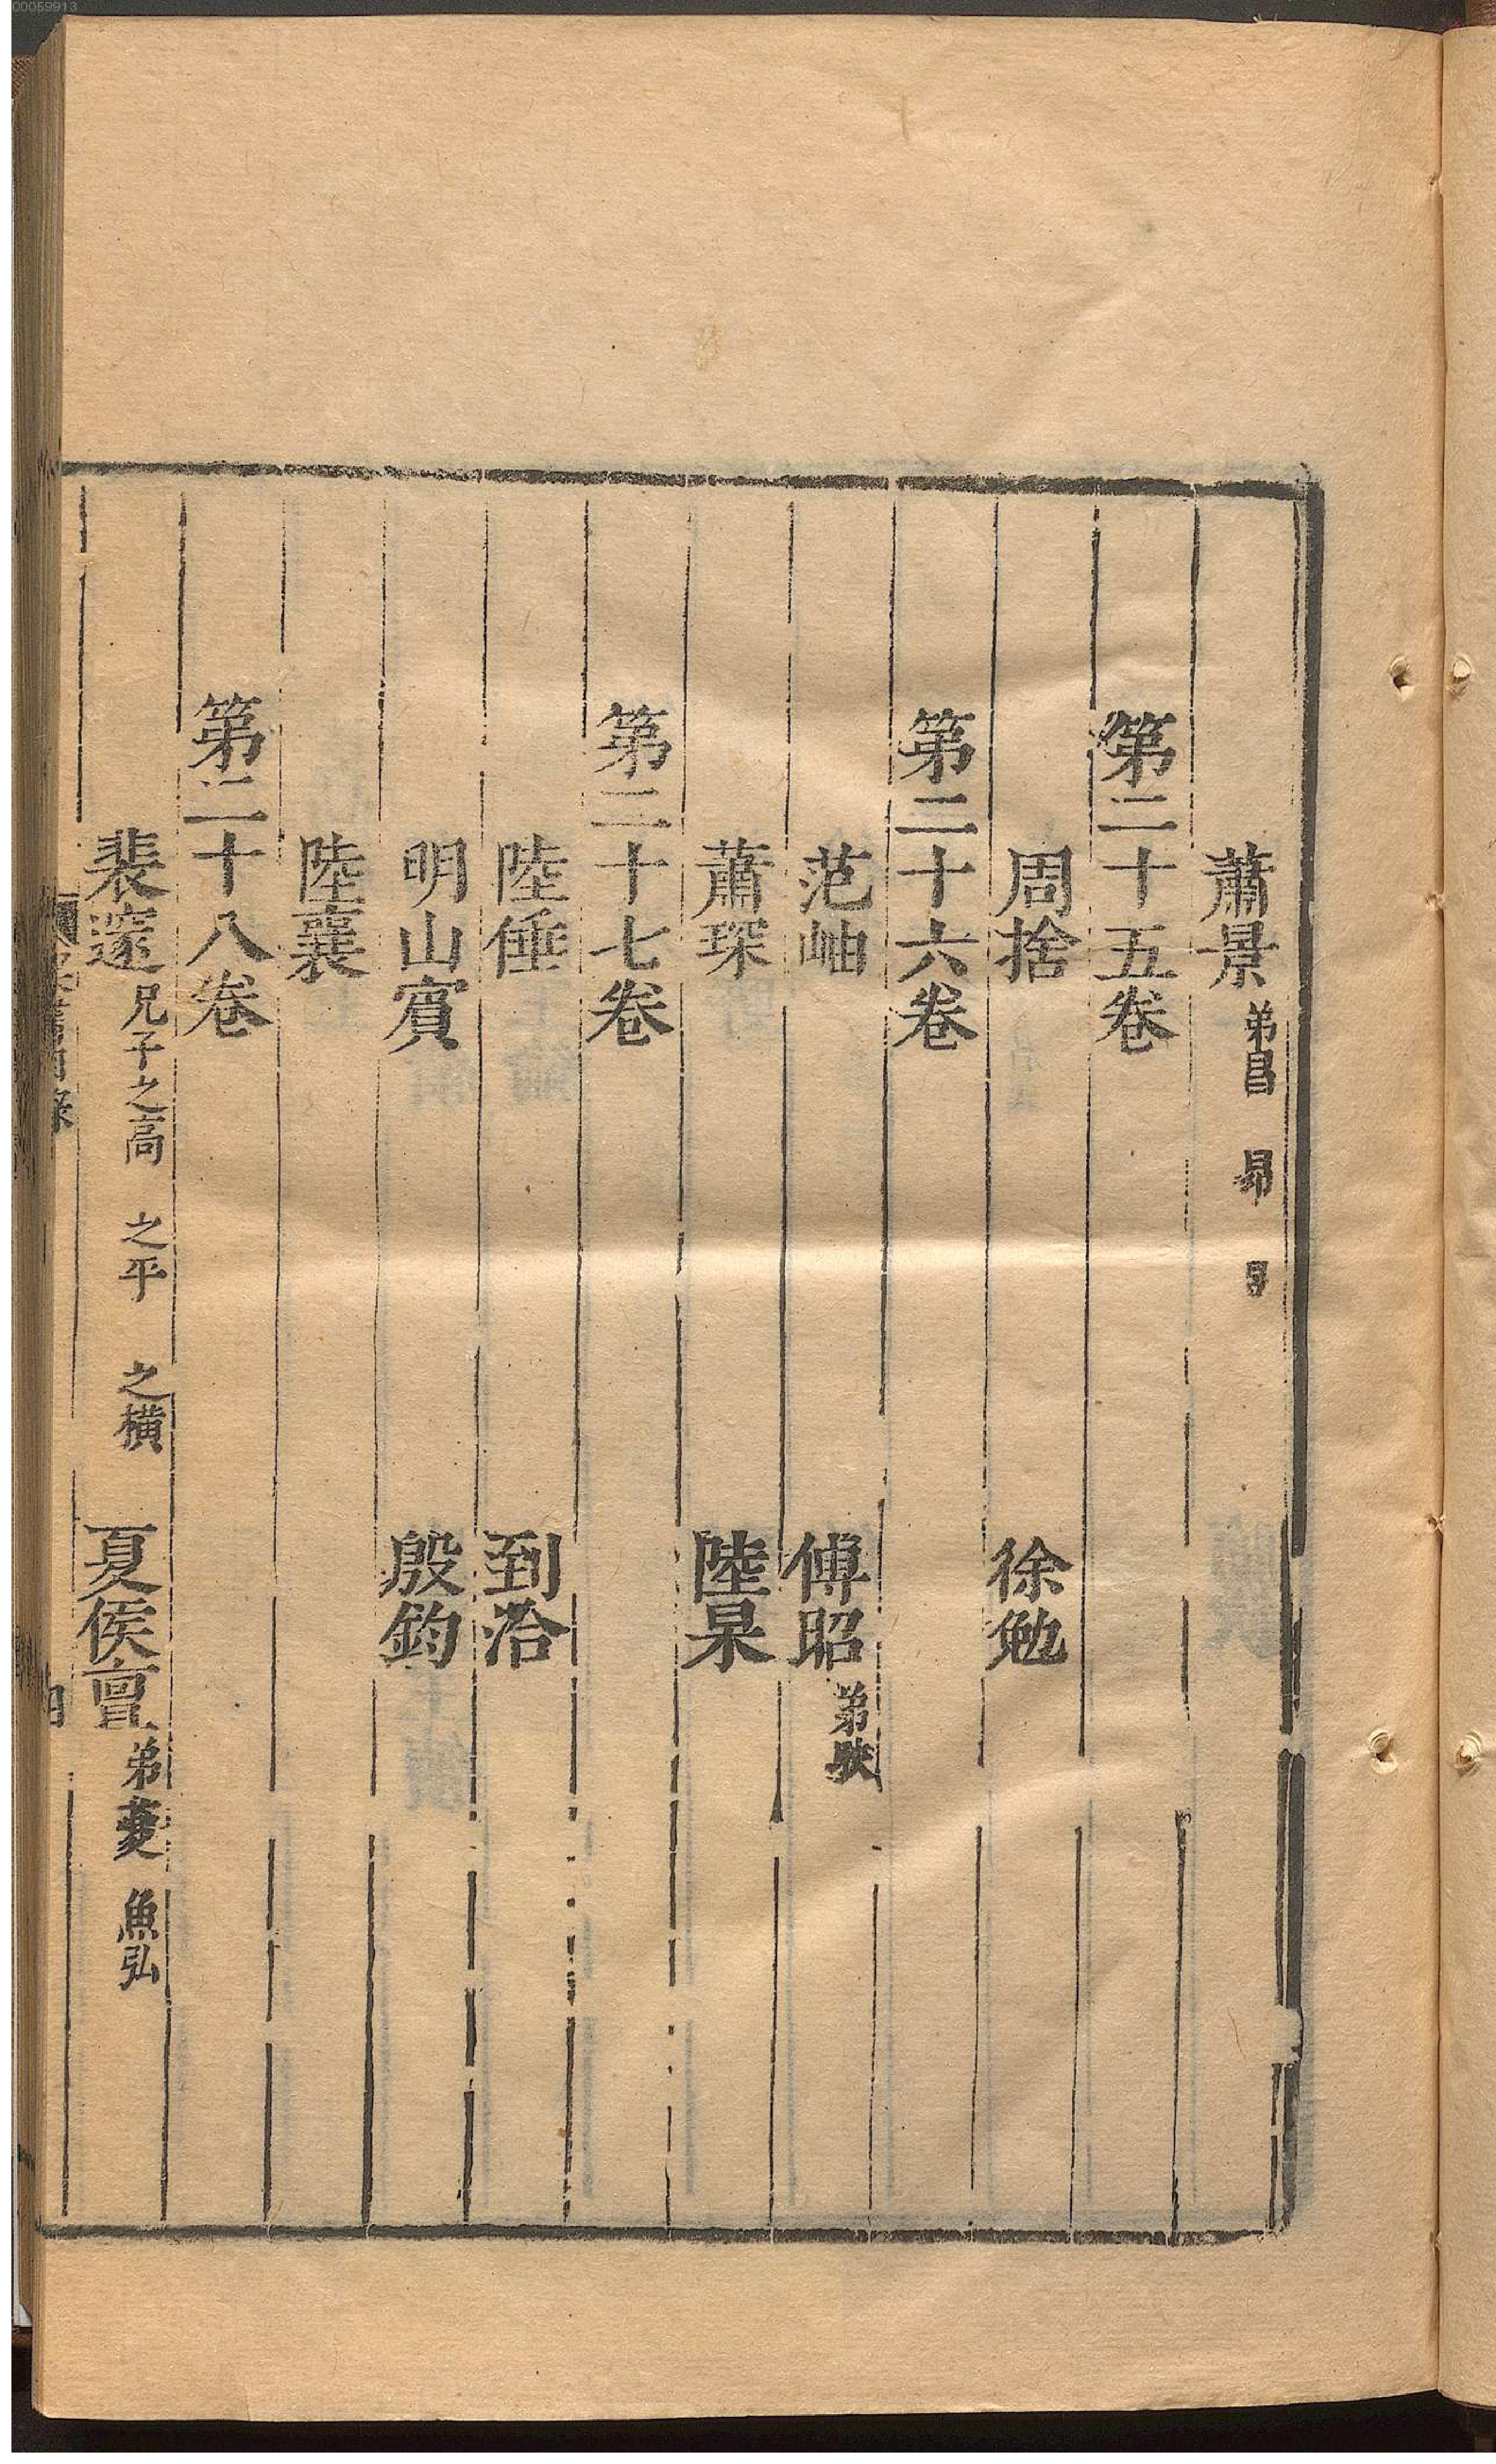 蕭景 弟昌 昂 昱
第二十五卷
周捨 徐勉
第二十六卷
范岫 傅昭 弟映
蕭琛 陸杲
第二十七卷
陸倕 到洽
明山賓 殷鈞
陸襄
第二十八卷
裴邃 兄子之高 之平 之橫 夏侯亶 弟夔 魚弘
00059913